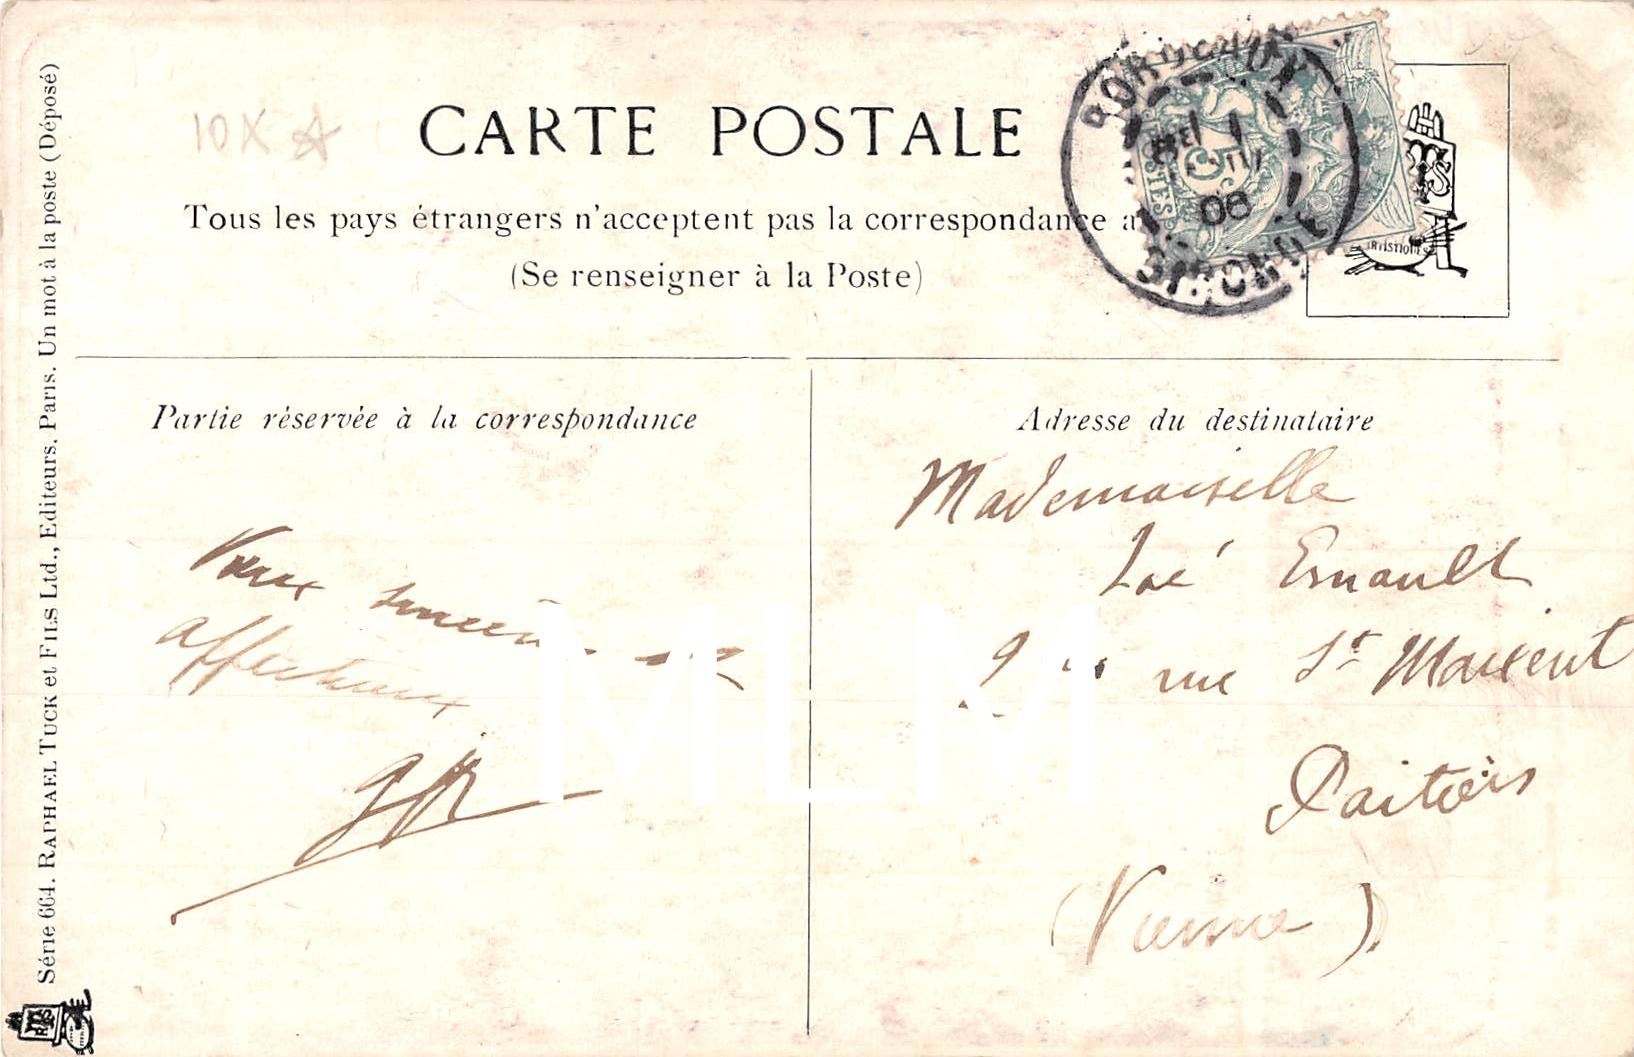 CARTE POSTALE
Tous les pays étrangers n'acceptent pas la correspondance a
(Se renseigner à la Poste)
10X
BORDEAUX
08
GIRONDE
5c
Partie réservée à la correspondance
Vœux sincères et
affectueux
Adresse du destinataire
Mademoiselle
Zoé Esnault
9 rue St Maixent
Poitiers
(Vienne)
Série 664. RAPHAEL TUCK et FILS Ltd., Editeurs. Paris. Un mot à la poste (Déposé)
MLM